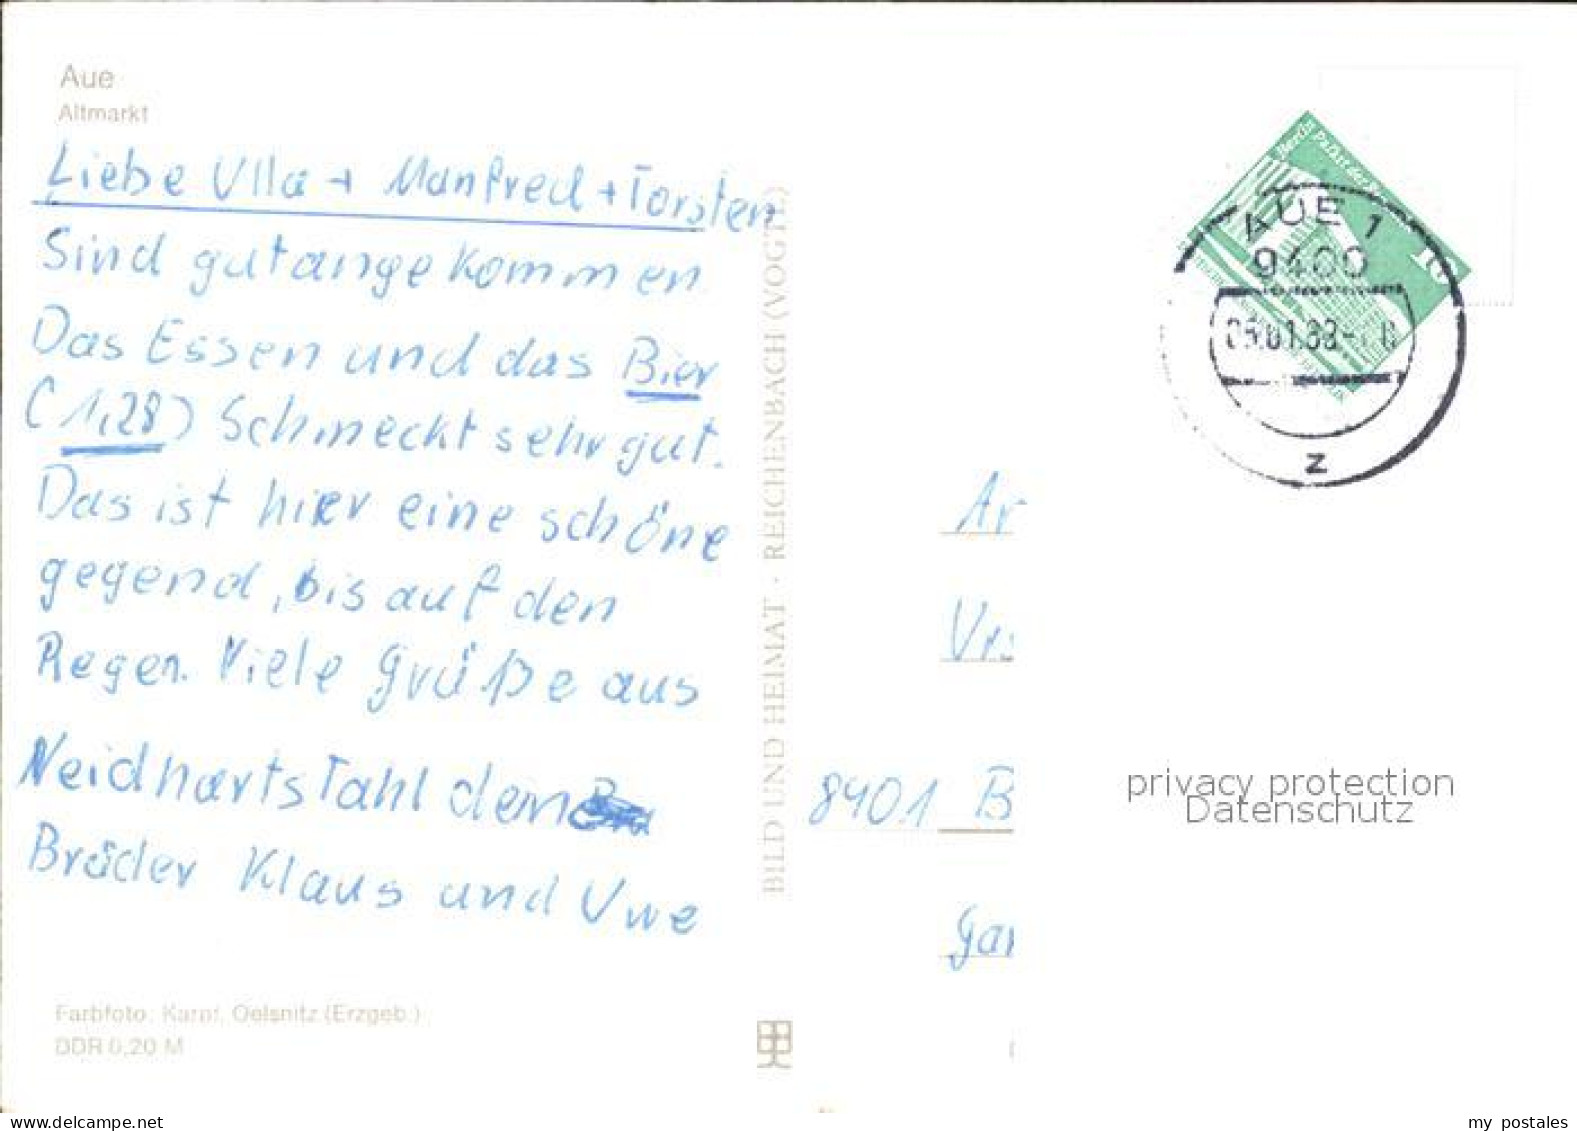 Aue
Altmarkt
Liebe Ulla + Manfred + Torsten
Sind gut angekommen
Das Essen und das Bier
(1,28) Schmeckt sehr gut.
Das ist hier eine schöne
gegend, bis auf den
Regen. Viele Grüße aus
Neidhartstahl den
Brüder Klaus und Uwe
Farbfoto: Karpf, Oelsnitz (Erzgeb.)
DDR 0,20 M
BILD UND HEIMAT · REICHENBACH (VOGTL)
Berlin Palast der
10
AUE 1
9400
z
8401 B
privacy protection
Datenschutz
www.delcampe.net
my postales